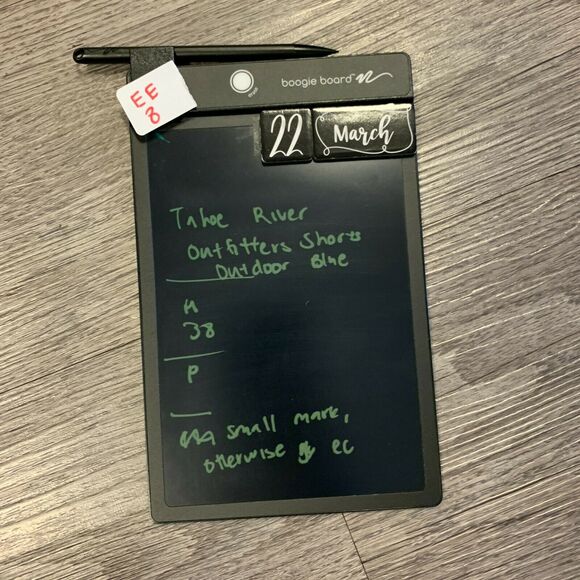 boogie board™
erase
EE
8
22 March
Tahoe River
Outfitters Shorts
Outdoor Blue
38
P
small mark,
otherwise ec